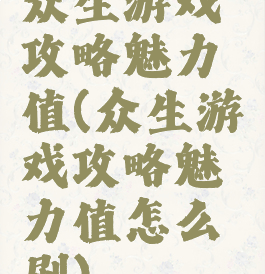 众生游戏
攻略魅力
值(众生游
戏攻略魅
力值怎么
刷)